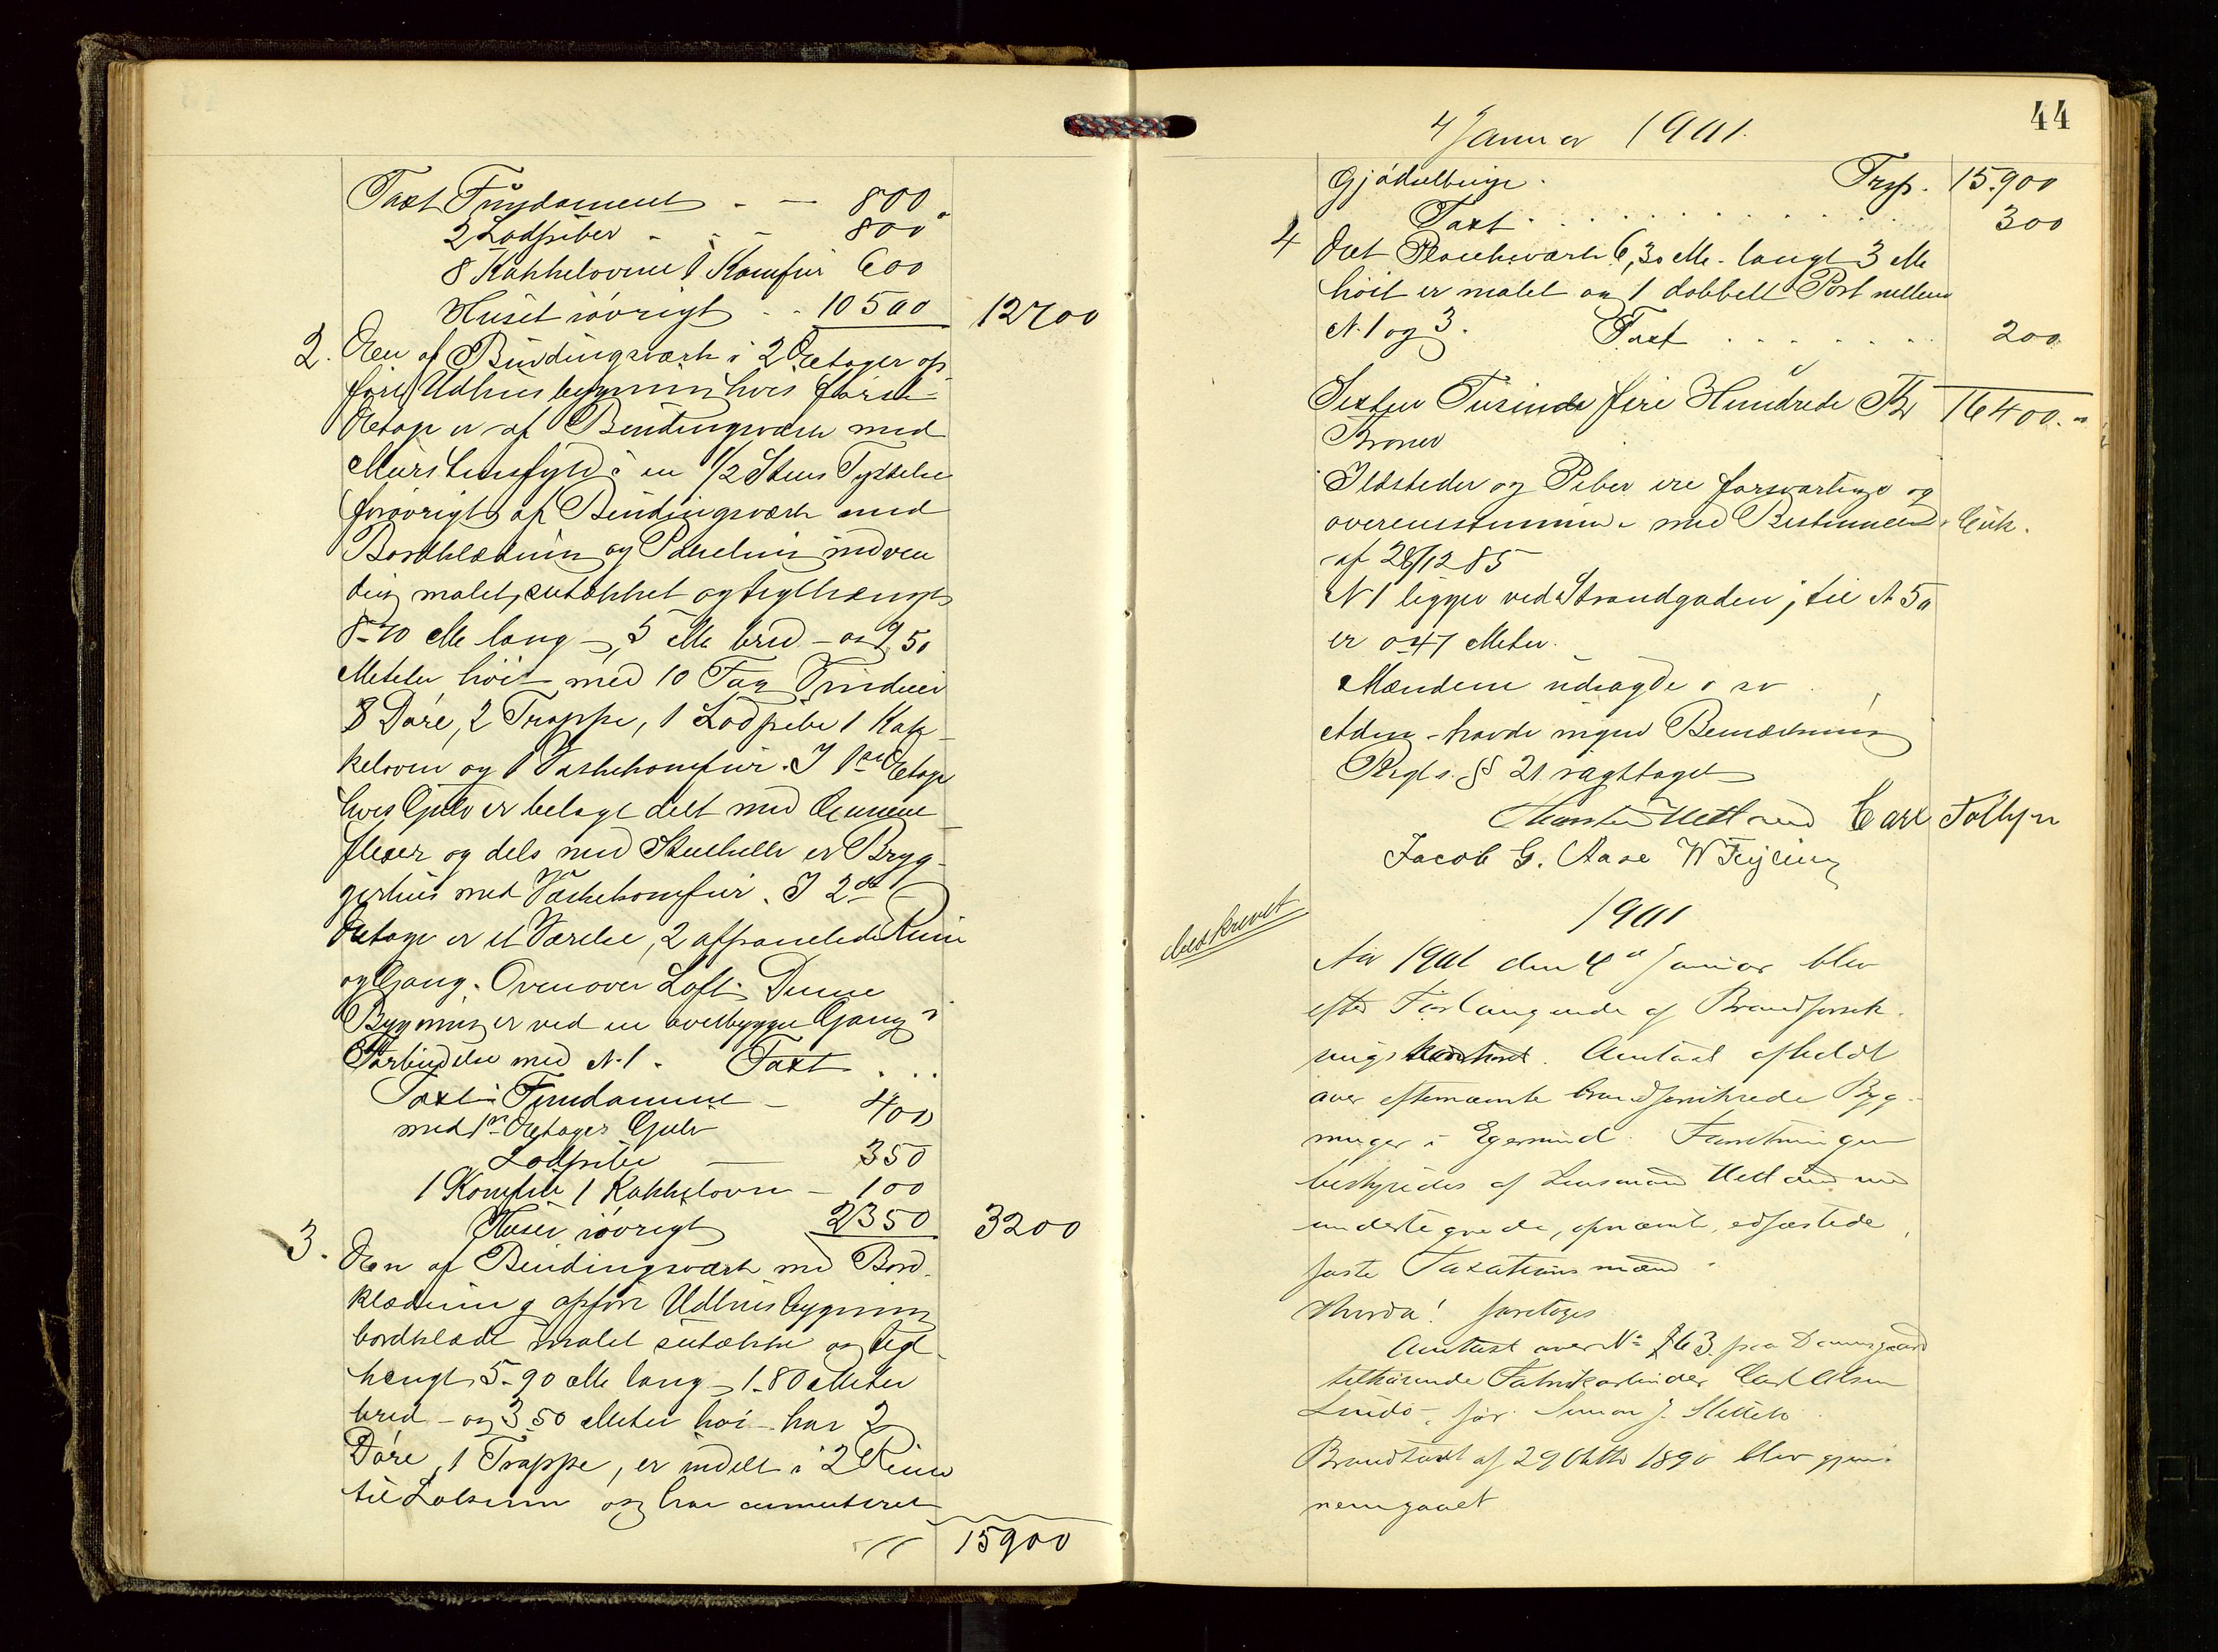 Taxt Fundament - — 800
2 Lodpiber - - - 800
8 Kakkelovne 1 Komfur 600
Huset iøvrigt - - 10500 12700
2. Den af Bindingsværk i 2 Etager op
ført Udhusbygning hvis første
Etage er af Bindingsværk med
Murstensfyld i en 1/2 Stens Tykkelse
forøvrigt af Bindingsværk med
Bordklædning og Panelning indven
dig malet, sutækket og teglhængt
8-70 M lang - 5 M bred - og 7,50
Meter høit med 10 Fag Vinduer
8 Døre, 2 Trappe, 1 Lodpibe 1 Kak
kelovn og 1 Vaskekomfur. I 1ste Etage
hvis Gulv er belagt delt med Cement
fliser og dels med Stenheller er Bryg-
gerhus med Vaskekomfur. I 2den
Etage er et Værelse, 2 afpanelede Rum
og Gang. Ovenover Loft. Denne
Bygning er ved en overbygget Gang i
Forbindelse med N. 1. Taxt . . .
Taxt Fundament - 400
med 1ste Etages Gulv
Lodpibe — 350
1 Komfur 1 Kakkelovn - 100
Huset iøvrigt 2350 3200
3. Den af Bindingsværk med Bord
klædning opført Udhusbygning
bordklædt malet sutække og tegl
hængt 5-90 M lang - 1-80 Meter
bred - og 3 50 Meter høi - har 2
Døre, 1 Trappe, er inddelt i 2 Rum
til Lokum og har cementeret
15900
44
4 Januar 1901.
Gjødselbinge. Trsp. 15.900
Taxt . . . . . . . . 300
4 Det Plankeværk 6,30 M. langt 3 M
høit er malet og 1 dobbelt Port mellem
N. 1 og 3. Taxt . . . . . . 200
Sexten Tusinde fire Hundrede Kr 16400.-
Kroner
Ildsteder og Piber ere forsvarlige og
overensstemmende med Bestemmelse Cirk.
af 28/12 85
N 1 ligger ved Strandgaden; til N 50
er 0-47 Meter.
Mændene udsagde
havde ingen Bemærkning
Regl s. § 21 iagttaget
Hetland Carl Tollefsen
Jacob G. Aase W Feyling
1901
beskrevet
Aar 1901 den 4de Januar blev
efter Forlangende af Brandforsik
rings Kontoret. Omtaxt afholdt
over efternævnte brandforsikrede Byg-
ninger i Egersund. Forretningen
bestyredes af Lensmand Hetland med
undertegnede, opnævnte, edfæstede
faste Taxationsmænd.
Hvorda! foretoges
Omtaxt over No 763 paa Damsgaard
tilhørende Fabrikarbeider Carl Olsen
Lindø, før Simon J. Sletteb
Brandtaxt af 29 Oktbr 1890 blev gjen-
nemgaaet